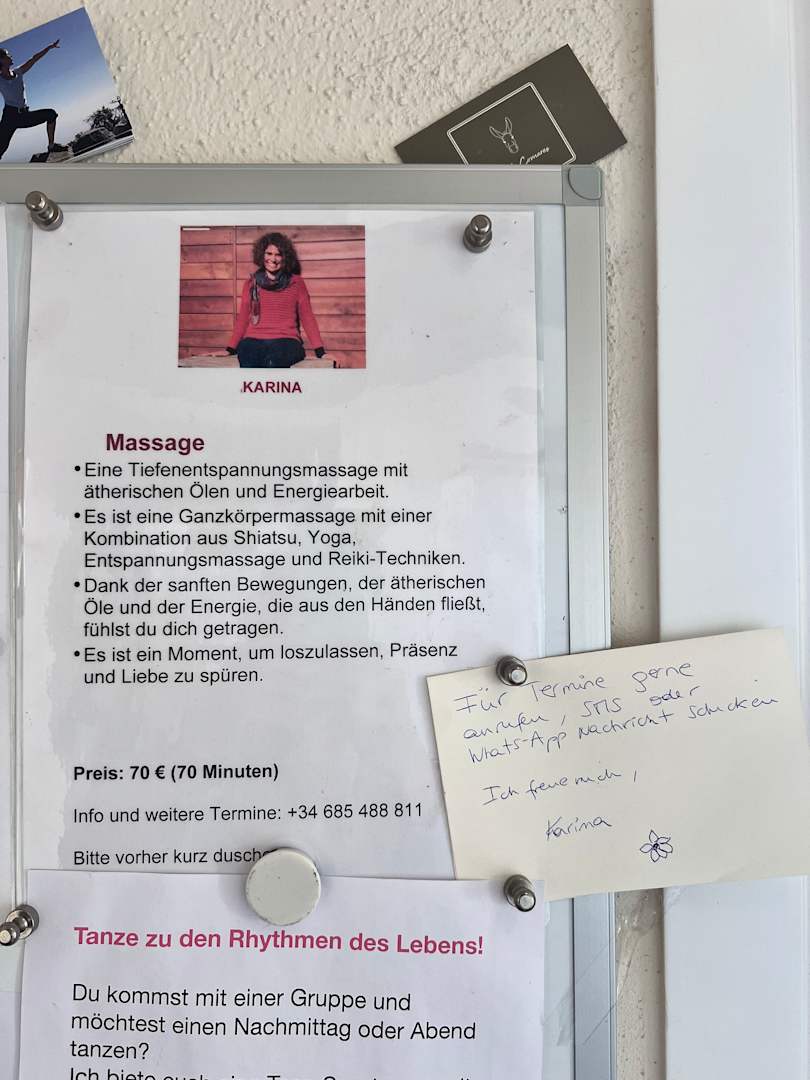 KARINA
Massage
•Eine Tiefenentspannungsmassage mit
ätherischen Ölen und Energiearbeit.
•Es ist eine Ganzkörpermassage mit einer
Kombination aus Shiatsu, Yoga,
Entspannungsmassage und Reiki-Techniken.
•Dank der sanften Bewegungen, der ätherischen
Öle und der Energie, die aus den Händen fließt,
fühlst du dich getragen.
•Es ist ein Moment, um loszulassen, Präsenz
und Liebe zu spüren.
Preis: 70 € (70 Minuten)
Info und weitere Termine: +34 685 488 811
Bitte vorher kurz
Für Termine gerne
anrufen, SMS oder
Whats-App Nachricht schicken
Ich freue mich,
Karina
Tanze zu den Rhythmen des Lebens!
Du kommst mit einer Gruppe und
möchtest einen Nachmittag oder Abend
tanzen?
Ich biete